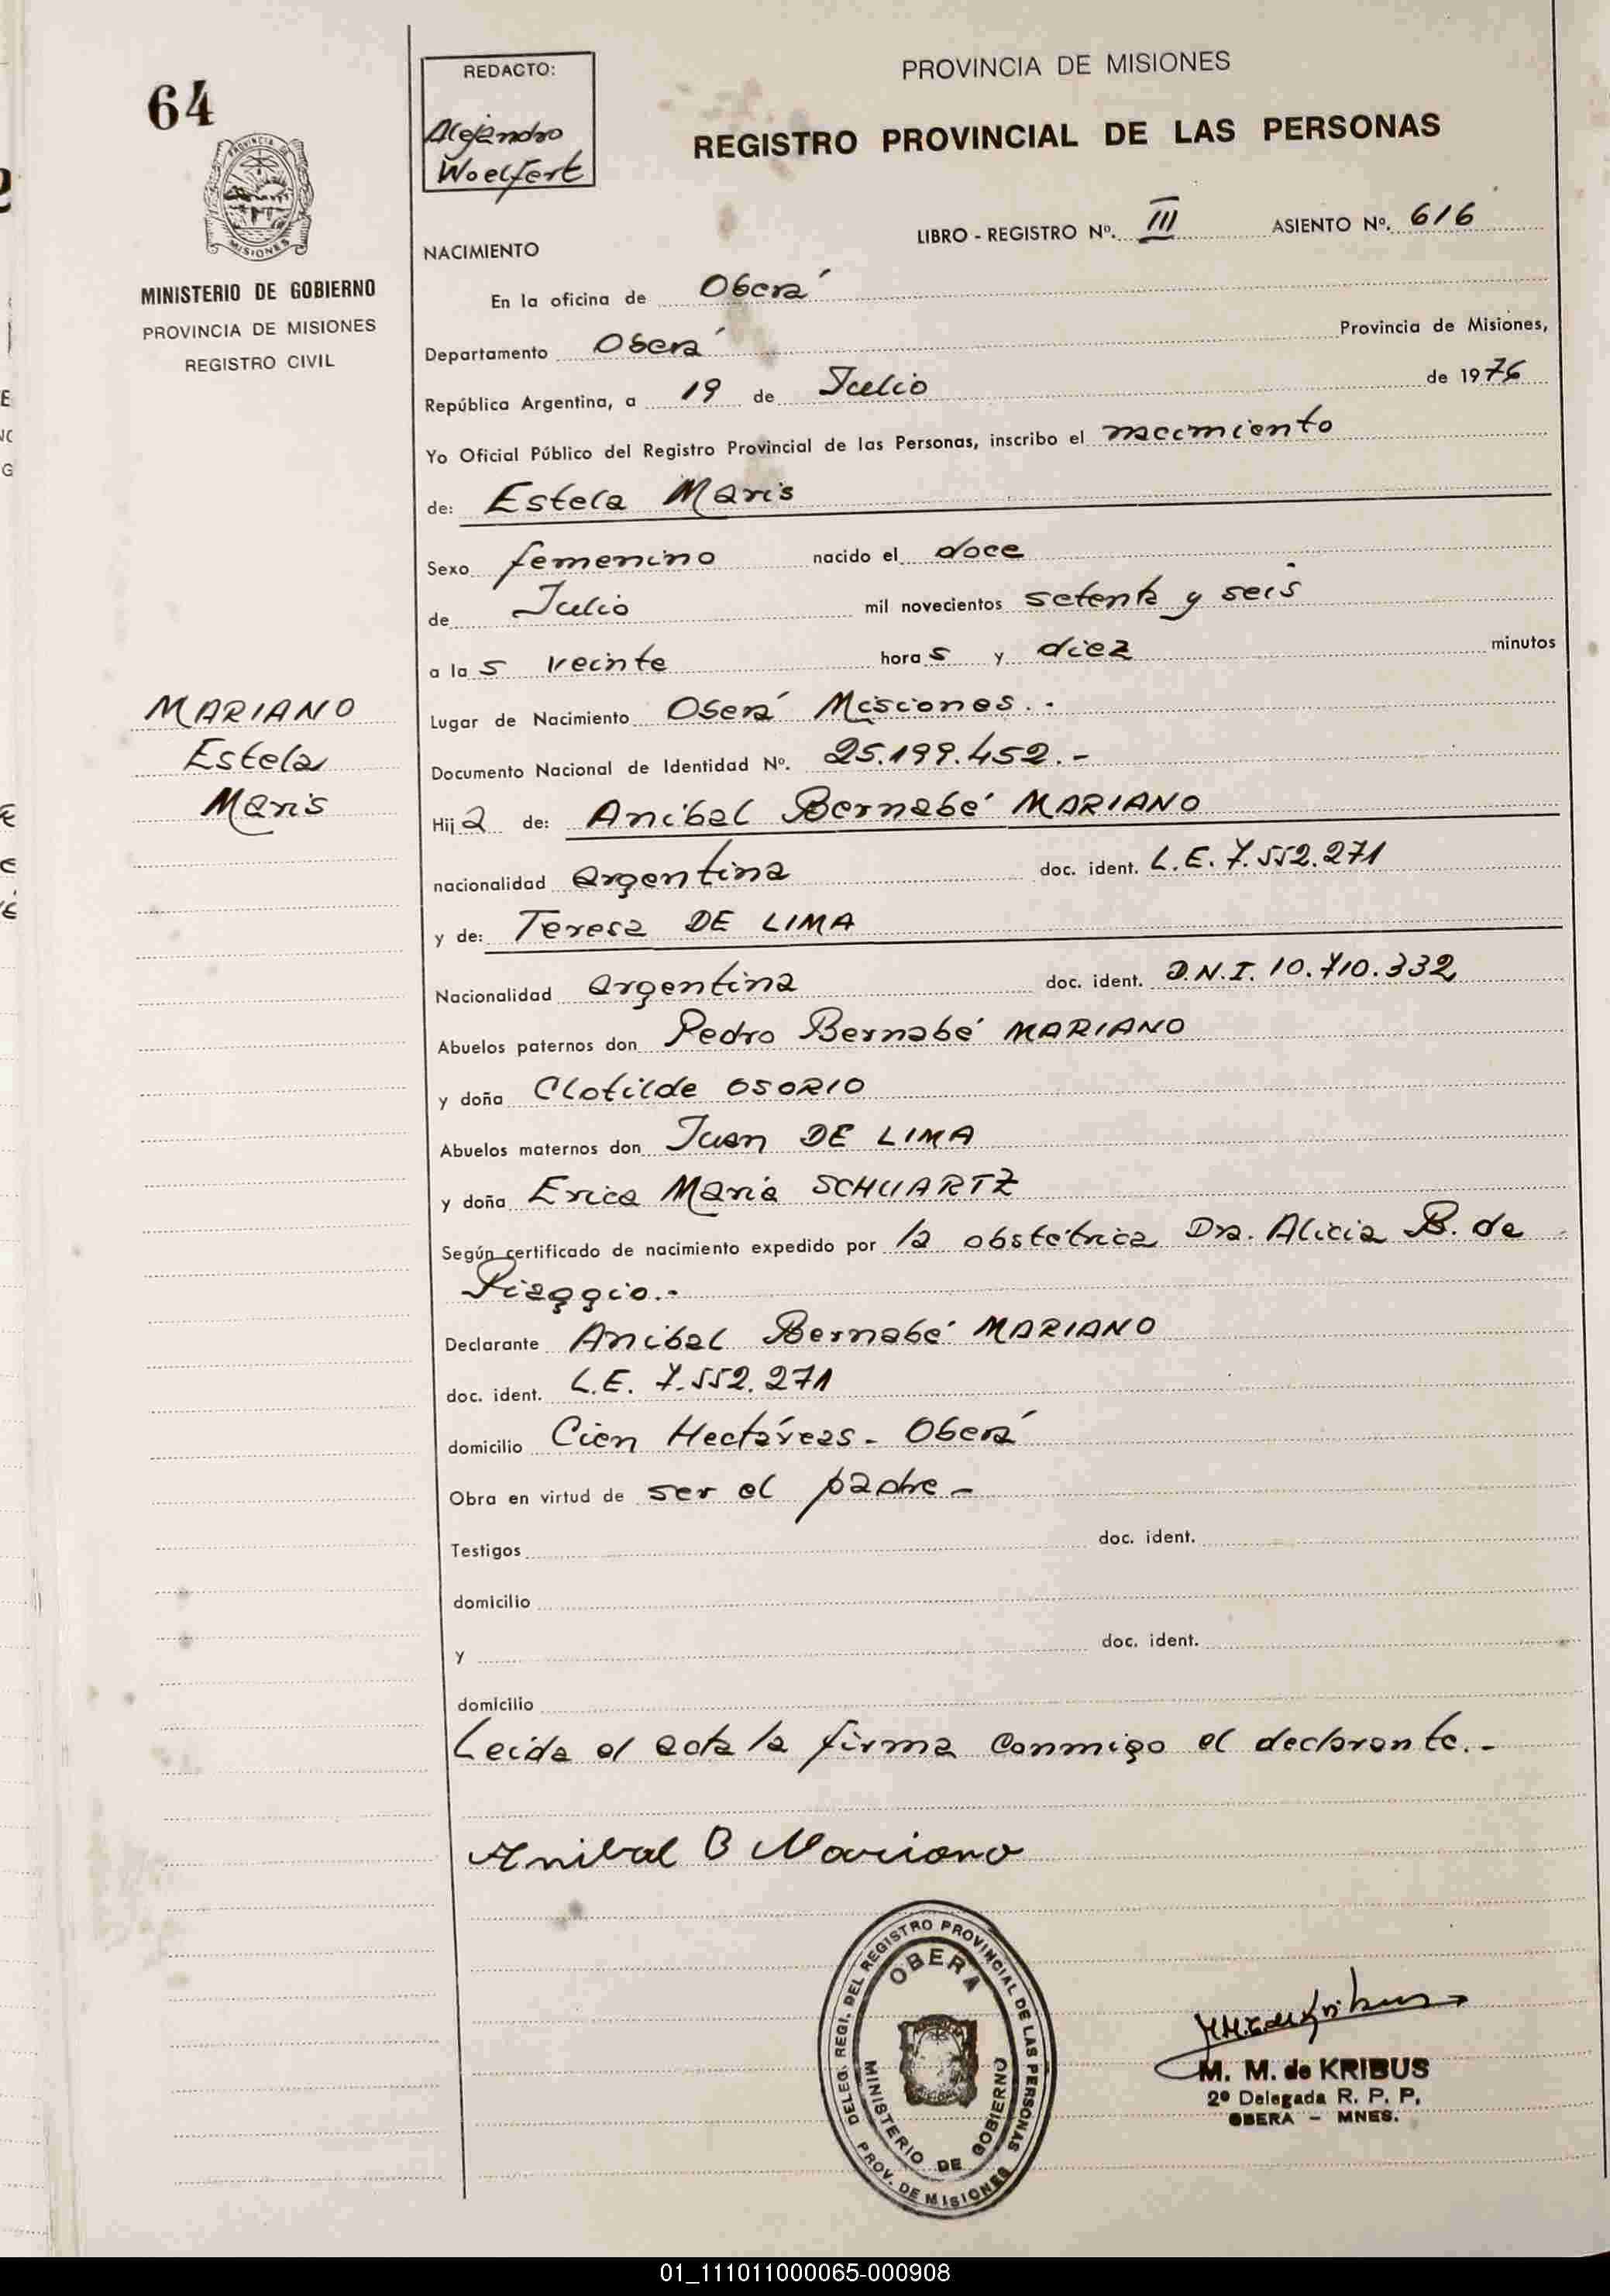 64
PROVINCIA DE MISIONES
MINISTERIO DE GOBIERNO
PROVINCIA DE MISIONES
REGISTRO CIVIL
MARIANO
Estela
Maris
REDACTO:
Alejandro
Woelfert
PROVINCIA DE MISIONES
REGISTRO PROVINCIAL DE LAS PERSONAS
LIBRO - REGISTRO Nº. III ASIENTO Nº. 616
NACIMIENTO
En la oficina de Oberá
Departamento Oberá Provincia de Misiones,
República Argentina, a 19 de Julio de 1976
Yo Oficial Público del Registro Provincial de las Personas, inscribo el nacimiento
de: Estela Maris
Sexo femenino nacido el doce
de Julio mil novecientos setenta y seis
a las veinte horas y diez minutos
Lugar de Nacimiento Oberá Misiones.-
Documento Nacional de Identidad Nº. 25.199.452.-
Hija de: Anibal Bernabé MARIANO
nacionalidad argentina doc. ident. L.E. 7.552.271
y de: Teresa DE LIMA
Nacionalidad argentina doc. ident. D.N.I. 10.710.332
Abuelos paternos don Pedro Bernabé MARIANO
y doña Clotilde OSORIO
Abuelos maternos don Juan DE LIMA
y doña Erica María SCHUARTZ
Según certificado de nacimiento expedido por la obstétrica Dra. Alicia B. de
Piaggio.-
Declarante Anibal Bernabé MARIANO
doc. ident. L.E. 7.552.271
domicilio Cien Hectáreas - Oberá
Obra en virtud de ser el padre -
Testigos doc. ident.
domicilio
y doc. ident.
domicilio
Leída el acta la firma conmigo el declarante.-
Anibal B Mariano
DELEG. REGI. DEL REGISTRO PROVINCIAL DE LAS PERSONAS
OBERA
MINISTERIO DE GOBIERNO
PROV. DE MISIONES
M. M. de KRIBUS
2º Delegada R. P. P.
OBERA - MNES.
01_111011000065-000908